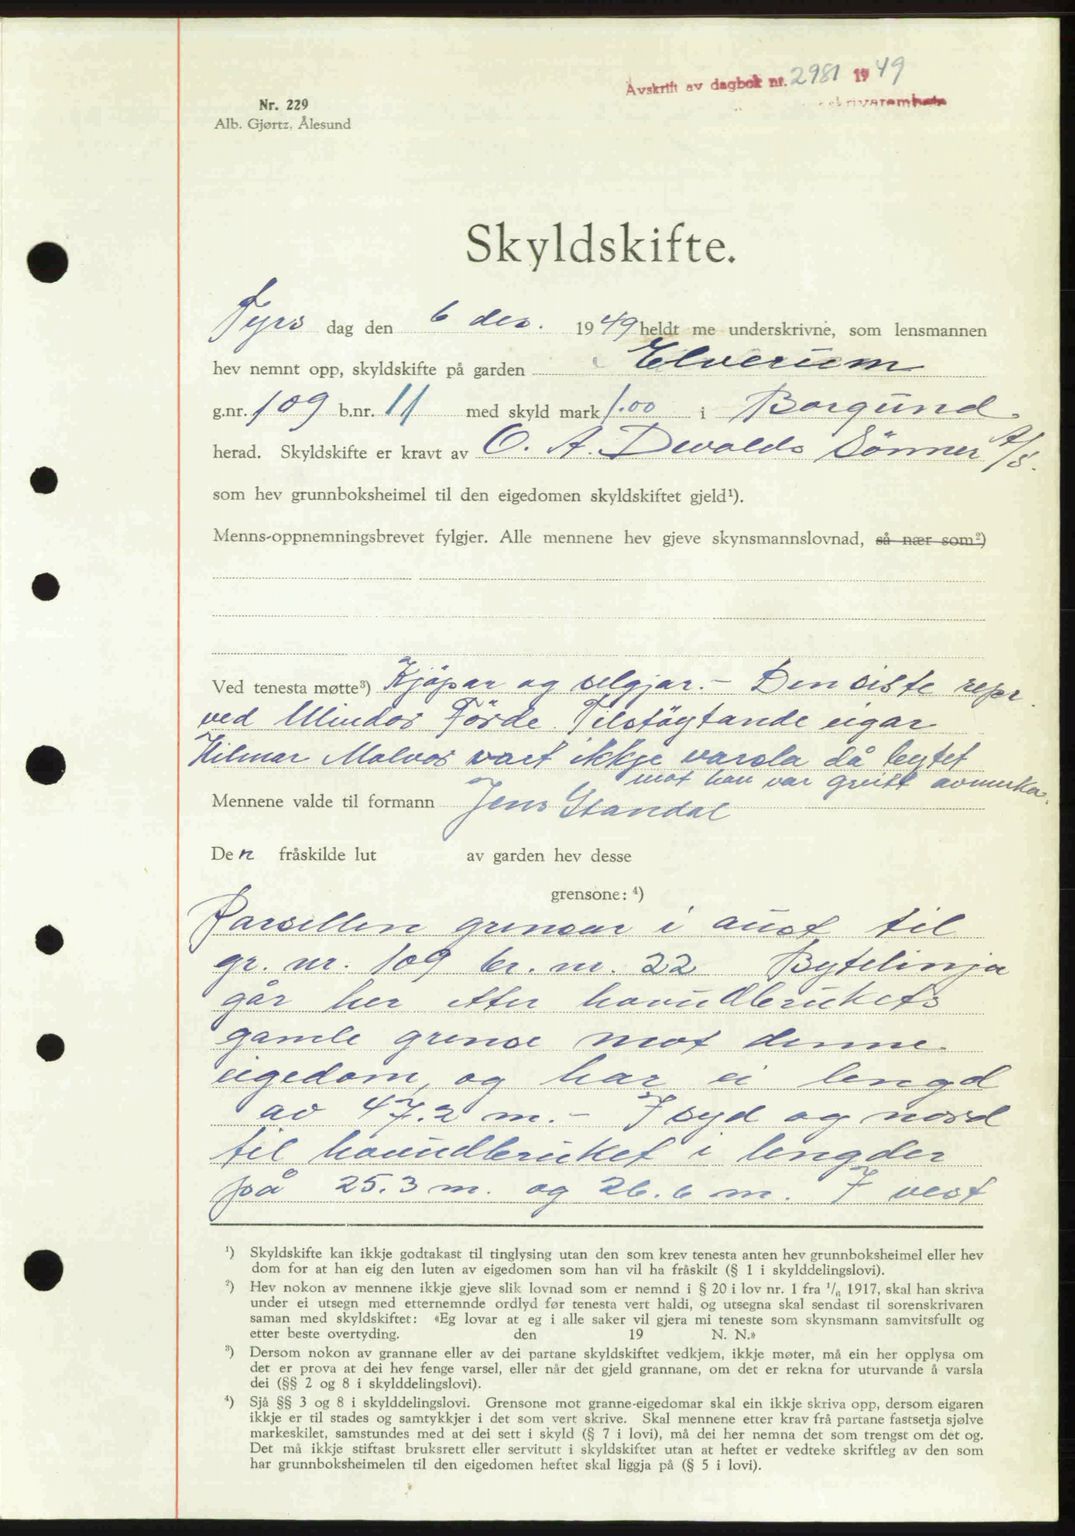 Avskrift av dagbok nr. 2981 1949
skrivarembete
Nr. 229
Alb. Gjørtz, Ålesund
Skyldskifte.
Tyrs dag den 6 des. 1949 heldt me underskrivne, som lensmannen
hev nemnt opp, skyldskifte på garden Elverum
g.nr. 109 b.nr. 11 med skyld mark 1.00 i Borgund
herad. Skyldskifte er kravt av O. A. Devolds Sönner A/S.
som hev grunnboksheimel til den eigedomen skyldskiftet gjeld¹).
Menns-oppnemningsbrevet fylgjer. Alle mennene hev gjeve skynsmannslovnad, så nær som²)
Ved tenesta møtte³) Kjöpar og seljar. - Den siste repr.
ved Förde. Tilstöytande eigar
Hilmar Molvær vart ikkje varsla då bytet
mot han var greitt avmerka.
Mennene valde til formann Jens Standal
Den fråskilde lut av garden hev desse
grensone: ⁴)
Parsellen grensar i aust til
gr. nr. 109 br. nr. 22 Bytelinja
går her etter hovudbrukets
gamle grense mot denne
eigedom, og har ei lengd
av 47.2 m. - I syd og nord
til hovudbruket i lengder
på 25.3 m. og 26.6 m. I vest
¹) Skyldskifte kan ikkje godtakast til tinglysing utan den som krev tenesta anten hev grunnboksheimel eller hev
dom for at han eig den luten av eigedomen som han vil ha fråskilt (§ 1 i skylddelingslovi).
²) Hev nokon av mennene ikkje gjeve slik lovnad som er nemnd i § 20 i lov nr. 1 fra ¹/₆ 1917, skal han skriva
under ei utsegn med etternemnde ordlyd før tenesta vert haldi, og utsegna skal sendast til sorenskrivaren
saman med skyldskiftet: «Eg lovar at eg i alle saker vil gjera mi teneste som skynsmann samvitsfullt og
etter beste overtyding. den 19 N. N.»
³) Dersom nokon av grannane eller av dei partane skyldskiftet vedkjem, ikkje møter, må ein her opplysa om
det er prova at dei hev fenge varsel, eller når det gjeld grannane, om det er rekna for uturvande å varsla
dei (§§ 2 og 8 i skylddelingslovi).
⁴) Sjå §§ 3 og 8 i skylddelingslovi. Grensone mot granne-eigedomar skal ein ikkje skriva opp, dersom eigaren
ikkje er til stades og samtykkjer i det som vert skrive. Skal mennene etter krav frå partane fastsetja sjølve
markeskilet, samstundes med at dei sett i skyld (§ 7 i lovi), må dei her nemna det som trengst om det og.
Det må ikkje stiftast bruksrett eller servitutt i skyldskiftet utan at heftet er vedteke skriftleg av den som
har grunnboksheimelen til den eigedomen heftet skal liggja på (§ 5 i lovi).